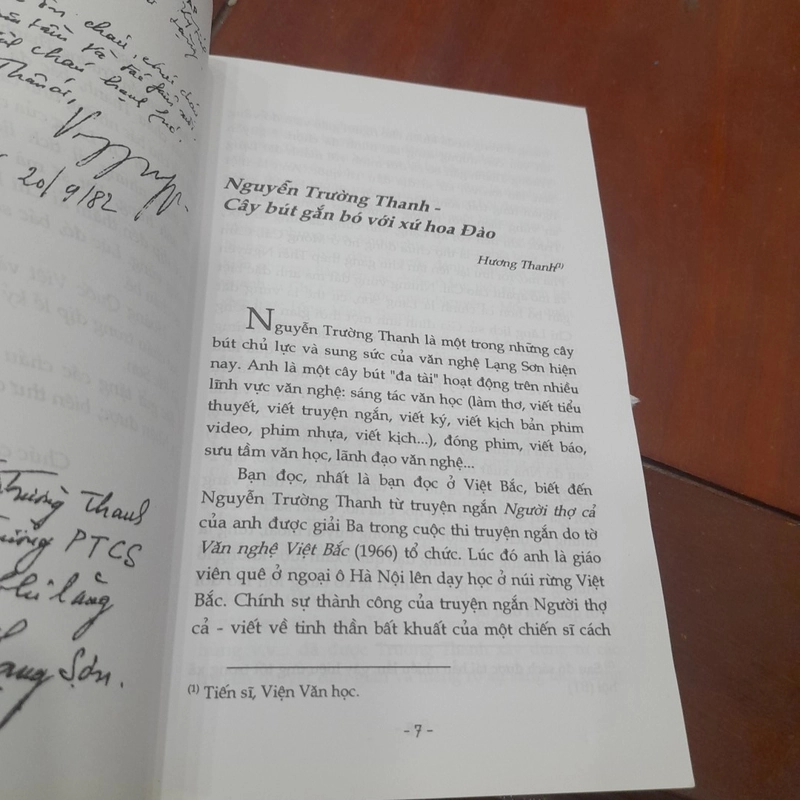 chúc cháu
20/9/82
Trường Thanh
Trường PTCS
Chi Lăng
Lạng Sơn.
Nguyễn Trường Thanh -
Cây bút gắn bó với xứ hoa Đào
Hương Thanh(1)
Nguyễn Trường Thanh là một trong những cây
bút chủ lực và sung sức của văn nghệ Lạng Sơn hiện
nay. Anh là một cây bút "đa tài" hoạt động trên nhiều
lĩnh vực văn nghệ: sáng tác văn học (làm thơ, viết tiểu
thuyết, viết truyện ngắn, viết ký, viết kịch bản phim
video, phim nhựa, viết kịch...), đóng phim, viết báo,
sưu tầm văn học, lãnh đạo văn nghệ...
Bạn đọc, nhất là bạn đọc ở Việt Bắc, biết đến
Nguyễn Trường Thanh từ truyện ngắn Người thợ cả
của anh được giải Ba trong cuộc thi truyện ngắn do tờ
Văn nghệ Việt Bắc (1966) tổ chức. Lúc đó anh là giáo
viên quê ở ngoại ô Hà Nội lên dạy học ở núi rừng Việt
Bắc. Chính sự thành công của truyện ngắn Người thợ
cả - viết về tinh thần bất khuất của một chiến sĩ cách
(1) Tiến sĩ, Viện Văn học.
- 7 -